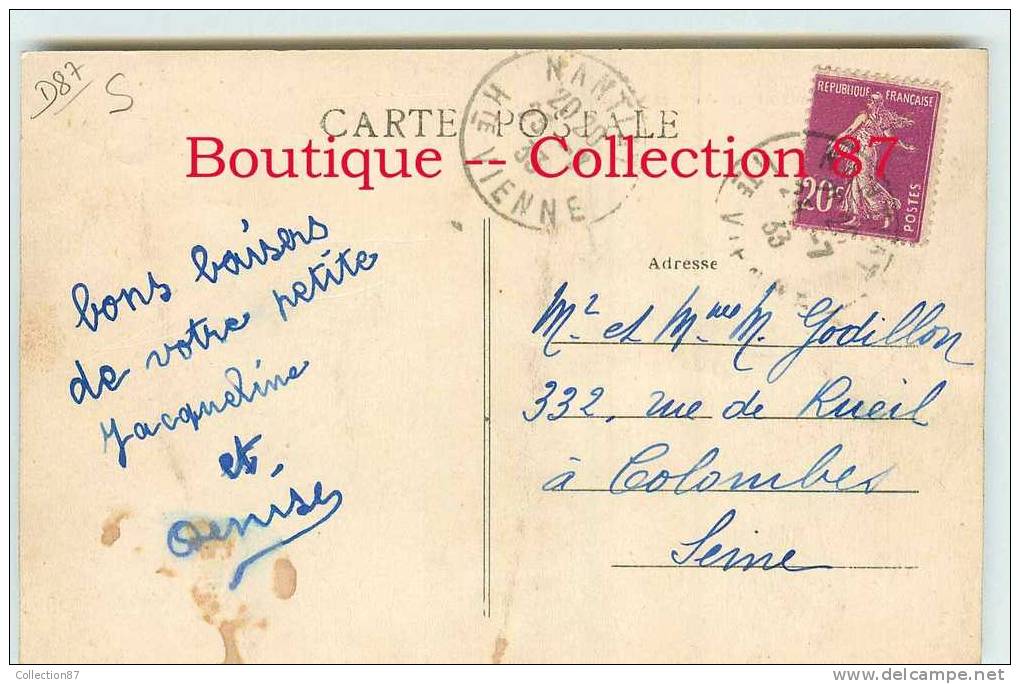 D87
S
CARTE POSTALE
NANT
20
HTE VIENNE
REPUBLIQUE FRANÇAISE
20c
POSTES
33
Boutique -- Collection 87
bons baisers
de votre petite
Jacqueline
et
Denise
Adresse
Mr et Mme M. Godillon
332, rue de Rueil
à Colombes
Seine
Collection87
www.delcampe.net